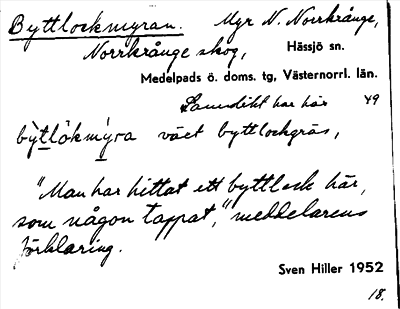 Byttlockmyran. Myr N. Norrkrånge,
Norrkrånge skog, Hässjö sn.
Medelpads ö. doms. tg, Västernorrl. län.
har här 49
bỳtlòkmýra växt byttlockgräs,
"Man har hittat ett byttlock här,
som någon tappat," meddelarens
förklaring.
Sven Hiller 1952
18.